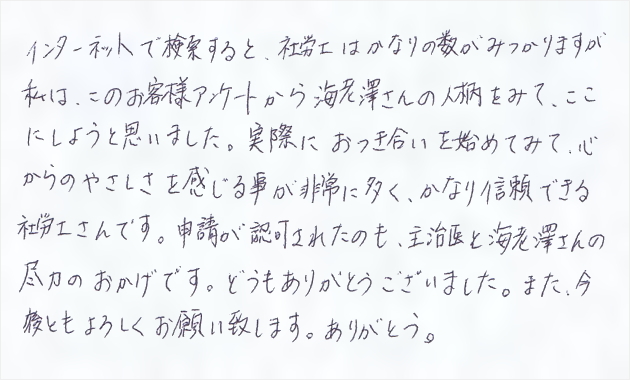 インターネットで検索すると、社労士はかなりの数がみつかりますが
私は、このお客様アンケートから海老澤さんの人柄をみて、ここ
にしようと思いました。実際におつき合いを始めてみて、心
からのやさしさを感じる事が非常に多く、かなり信頼できる
社労士さんです。申請が認可されたのも、主治医と海老澤さんの
尽力のおかげです。どうもありがとうございました。また、今
後ともよろしくお願い致します。ありがとう。